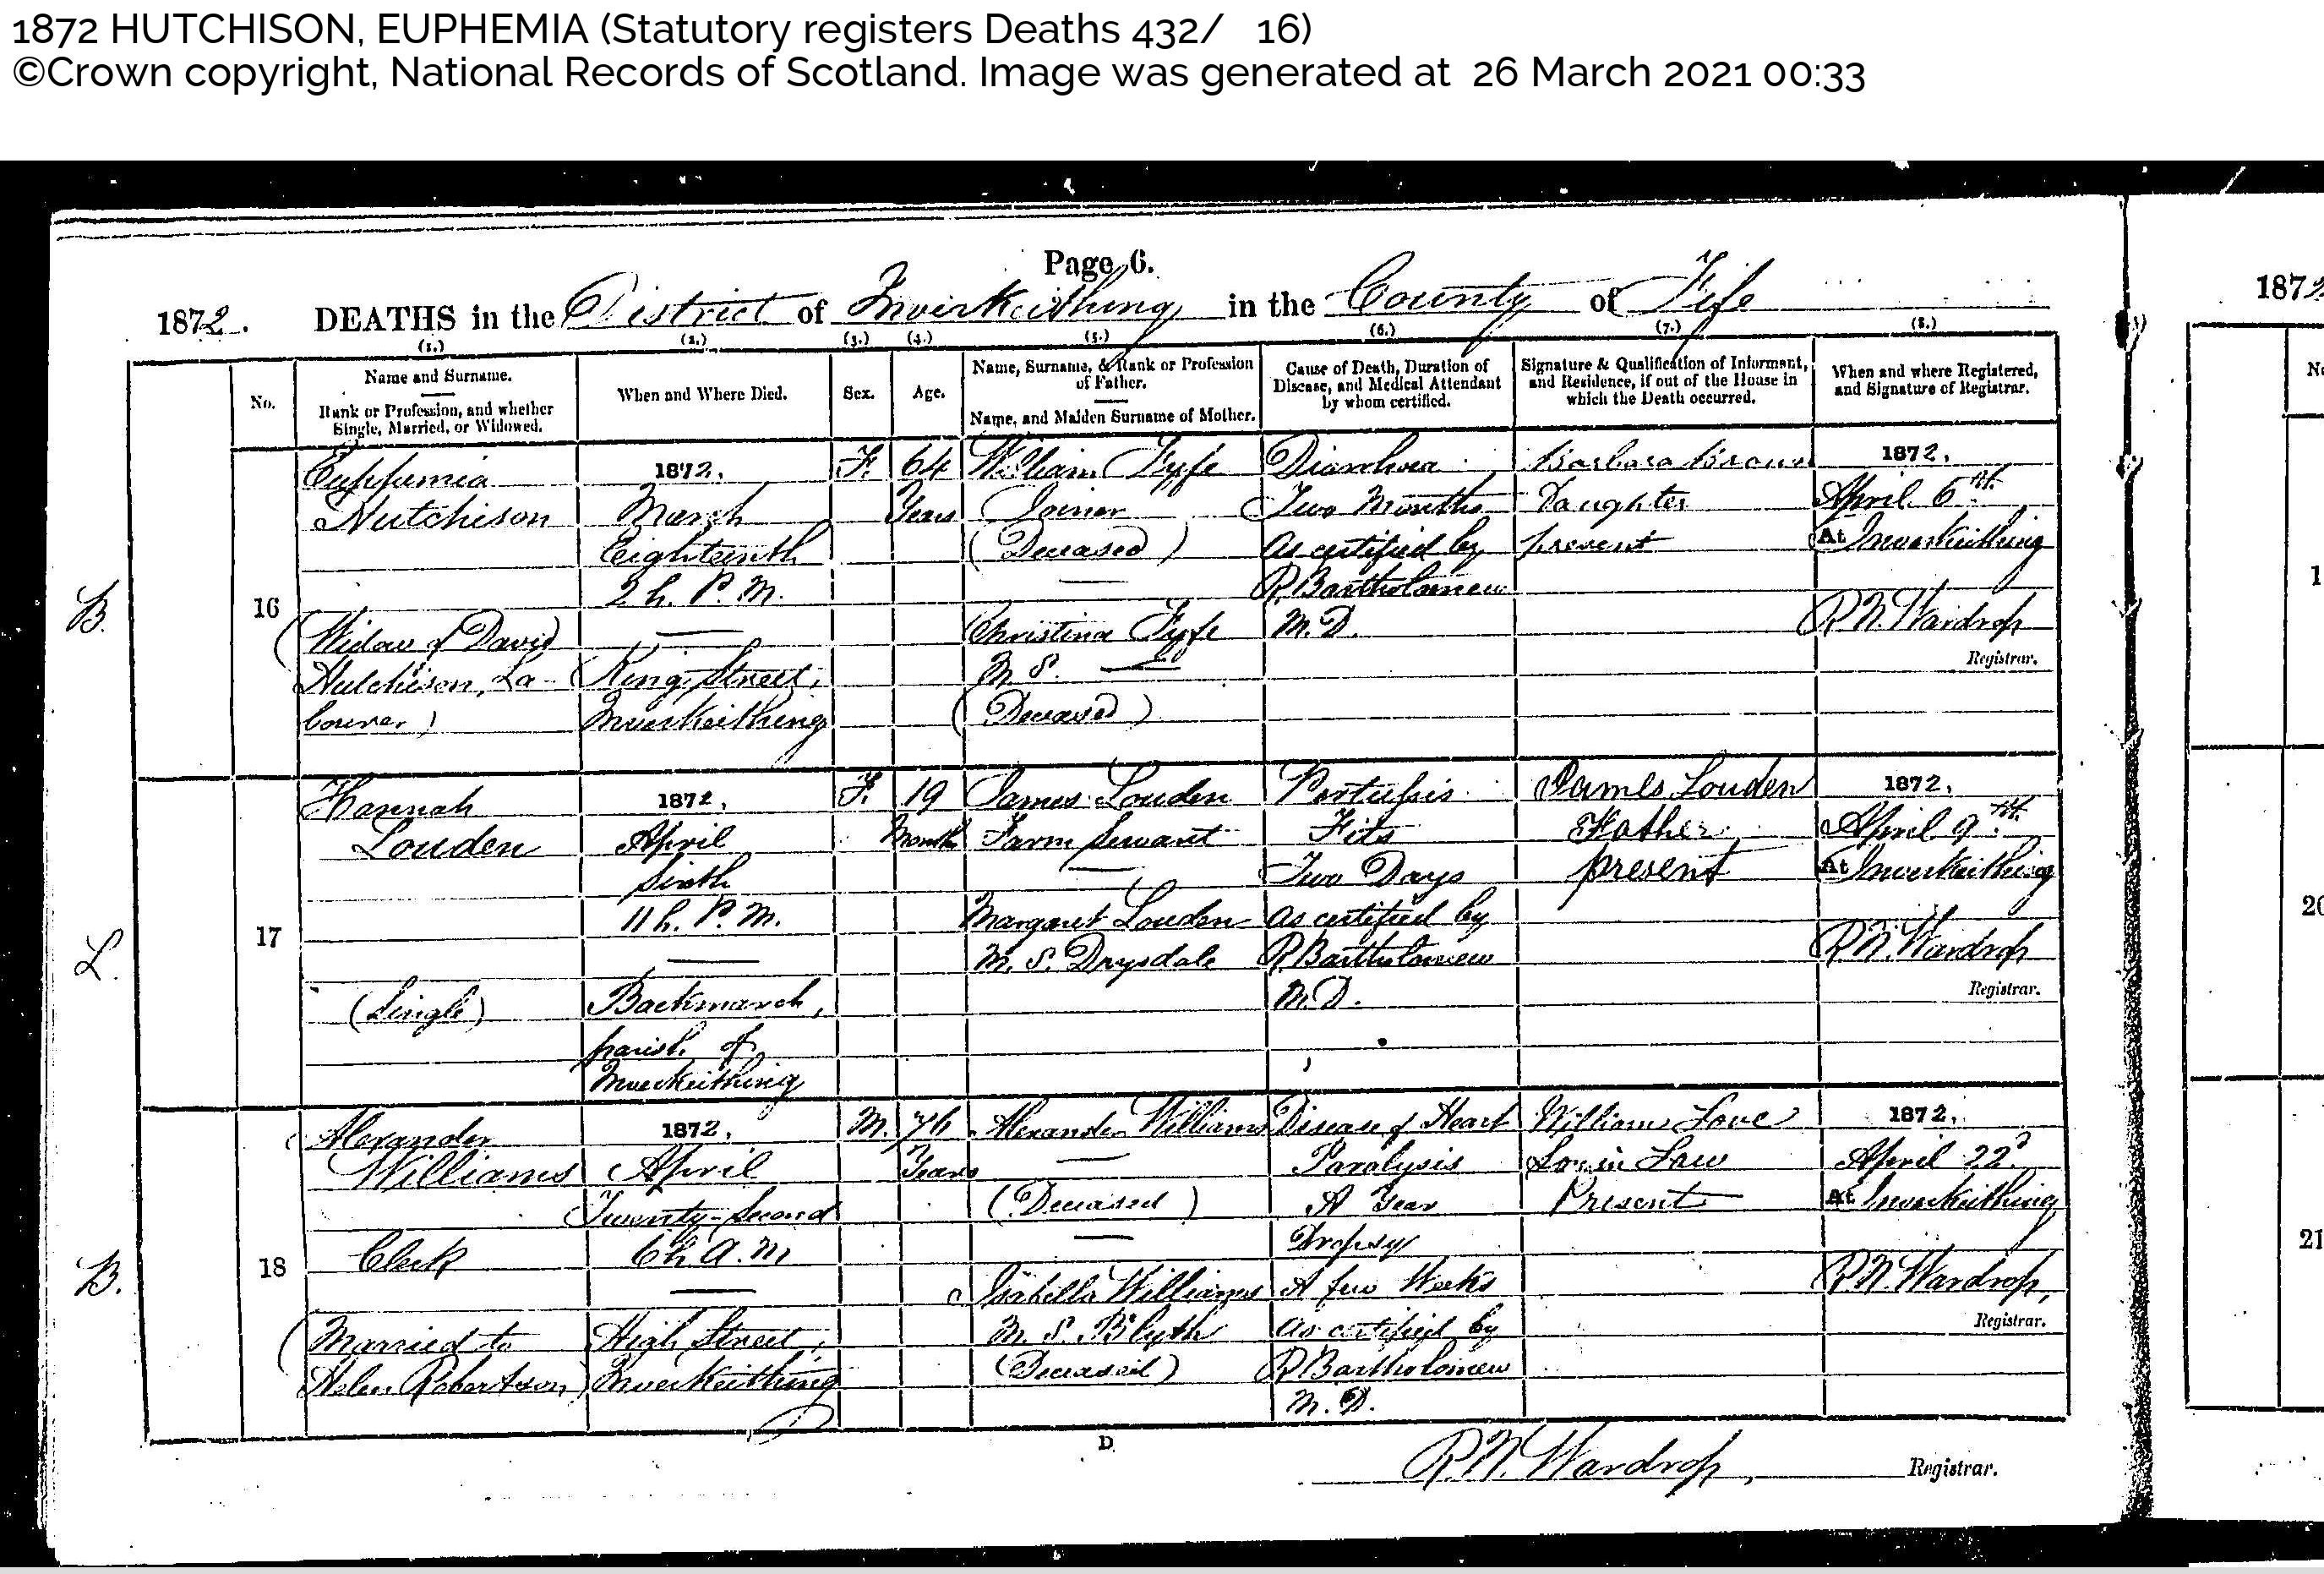 1872 HUTCHISON, EUPHEMIA (Statutory registers Deaths 432/ 16)
©Crown copyright, National Records of Scotland. Image was generated at 26 March 2021 00:33
Page 6.
1872. DEATHS in the District of Inverkeithing in the County of Fife
1872
(1.) (2.) (3.) (4.) (5.) (6.) (7.) (8.)
No.
Name and Surname.
Rank or Profession, and whether
Single, Married, or Widowed.
When and Where Died.
Sex.
Age.
Name, Surname, & Rank or Profession
of Father.
Name, and Maiden Surname of Mother.
Cause of Death, Duration of
Disease, and Medical Attendant
by whom certified.
Signature & Qualification of Informant,
and Residence, if out of the House in
which the Death occurred.
When and where Registered,
and Signature of Registrar.
B.
16
Euphemia
Hutchison
(Widow of David
Hutchison, La-
bourer)
1872,
March
Eighteenth
2 h. P. M.
King Street,
Inverkeithing
F.
64
Years
William Fyfe
Joiner
(Deceased)
Christina Fyfe
M. S. —
(Deceased)
Diarrhoea
Two Months
As certified by
R. Bartholomew
M. D.
Barbara Brown
Daughter
present
1872,
April 6th.
At Inverkeithing
R. N. Wardrop
Registrar.
L.
17
Hannah
Louden
(Single)
1872,
April
Sixth
11 h. P. M.
Backmarch,
parish of
Inverkeithing
F.
19
Months
James Louden
Farm Servant
Margaret Louden
M. S. Drysdale
Pertussis
Fits
Two Days
As certified by
R. Bartholomew
M. D.
James Louden
Father
present
1872,
April 9th.
At Inverkeithing
R. N. Wardrop
Registrar.
20
B.
18
Alexander
Williams
Clerk
(Married to
Helen Robertson)
1872,
April
Twenty-Second
6 h. A. M
High Street,
Inverkeithing
M.
76
Years
Alexander Williams
(Deceased)
Isabella Williams
M. S. Blyth
(Deceased)
Disease of Heart
Paralysis
A Year
Dropsy
A few Weeks
As certified by
R. Bartholomew
M. D.
William Love
Son in Law
Present
1872,
April 22d
At Inverkeithing
R. N. Wardrop,
Registrar.
21
D
R. N. Wardrop, Registrar.